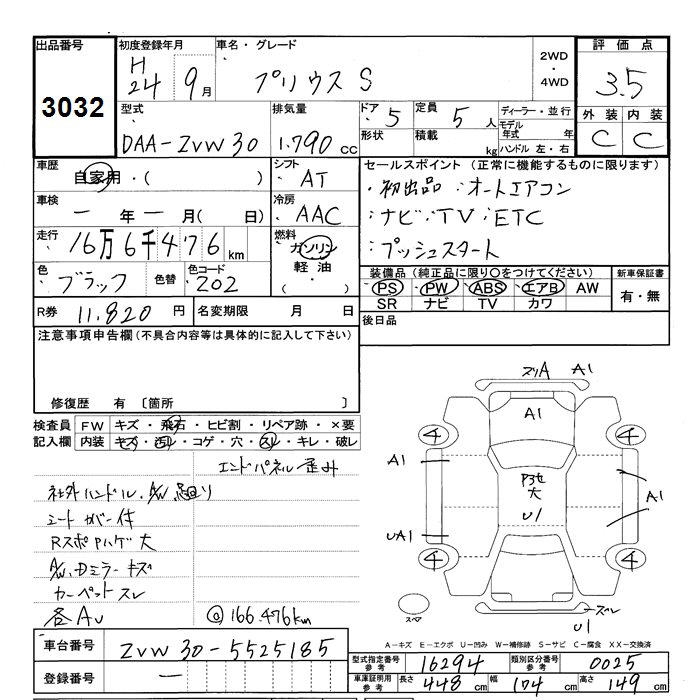 出品番号
3032
初度登録年月
H
24 9月
車名・グレード
プリウス S
2WD
・
4WD
評価点
3.5
型式
DAA-ZVW30
排気量
1.790 cc
ドア 5
定員 5 人
ディーラー・並行
モデル
年式 年
形状
積載 kg
ハンドル 左・右
外装 内装
C C
車歴
自家用・( )
シフト
AT
セールスポイント (正常に機能するものに限ります)
・初出品:オートエアコン
:ナビ:TV:ETC
:プッシュスタート
車検
- 年 - 月( 日)
冷房
AAC
走行
16万6千476 km
燃料
ガソリン
軽油
・( )
色
ブラック
色替
色コード
202
装備品 (純正品に限り○をつけてください)
PS ・PW ・ABS ・エアB AW
SR ナビ TV カワ
新車保証書
有・無
R券 11.820 円
名変期限 月 日
後日品
注意事項申告欄(不具合内容等は具体的に記入して下さい)
修復歴 有 〔箇所 〕
検査員 FW キズ・飛石・ヒビ割・リペア跡・×要
記入欄 内装 キズ・汚レ・コゲ・穴・スレ・キレ・破レ
エンドパネル 歪み
社外ハンドル.
シートカバー体
Rスポ Pハゲ大
A/W.Dミラーキズ
カーペットスレ
各AU
@166.476km
ズリA A1
A1
4 4
A1
大
A1
U1
UA1
4 4
スペア
ズレ
U1
A-キズ E-エクボ U-凹み W-補修跡 S-サビ C-腐食 XX-交換済
車台番号 ZVW30-5525185
登録番号 -
型式指定番号
参考
16294
類別区分番号
参考
0025
車庫証明用
参考
長さ 448 cm 幅 174 cm 高さ 149 cm